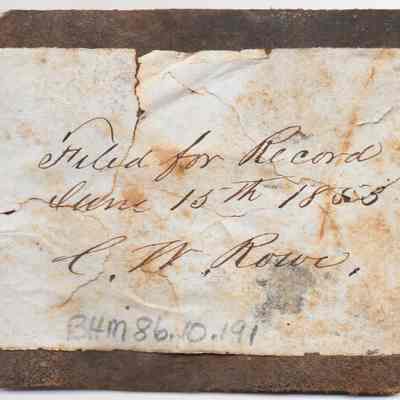 Filed for Record
June 15th 1853
C. W. Rowe,
BHM 86.10.191